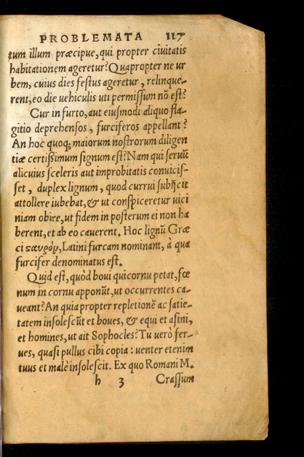 PROBLEMATA 117
tum illum præcipue, qui propter ciuitatis
habitationem ageretur? Quapropter ne ur
bem, cuius dies festus ageretur, relinque-
rent, eo die uehiculis uti permissum nõ est?
Cur in furto, aut eiusmodi aliquo fla-
gitio deprehensos, furciferos appellant?
An hoc quoq; maiorum nostrorum diligen
tiæ certissimum signum est? Nam qui seruũ
alicuius sceleris aut improbitatis conuicis-
set, duplex lignum, quod currui subijcit
attollere iubebat, & ut conspiceretur vici
niam obire, ut fidem in posterum ei non ha
berent, et ab eo cauerent. Hoc lignũ Græ
ci Latini furcam nominant, à qua
furcifer denominatus est.
Quid est, quòd boui qui cornu petat, fœ
num in cornu apponũt, ut occurrentes ca-
ueant? An quia propter repletionẽ ac satie-
tatem insolescũt et boues, & equi et asini,
et homines, ut ait Sophocles? Tu uerò fer-
ues, quasi pullus cibi copia: uenter etenim
tuus et malè insolescit. Ex quo Romani M.
h 3 Crassum